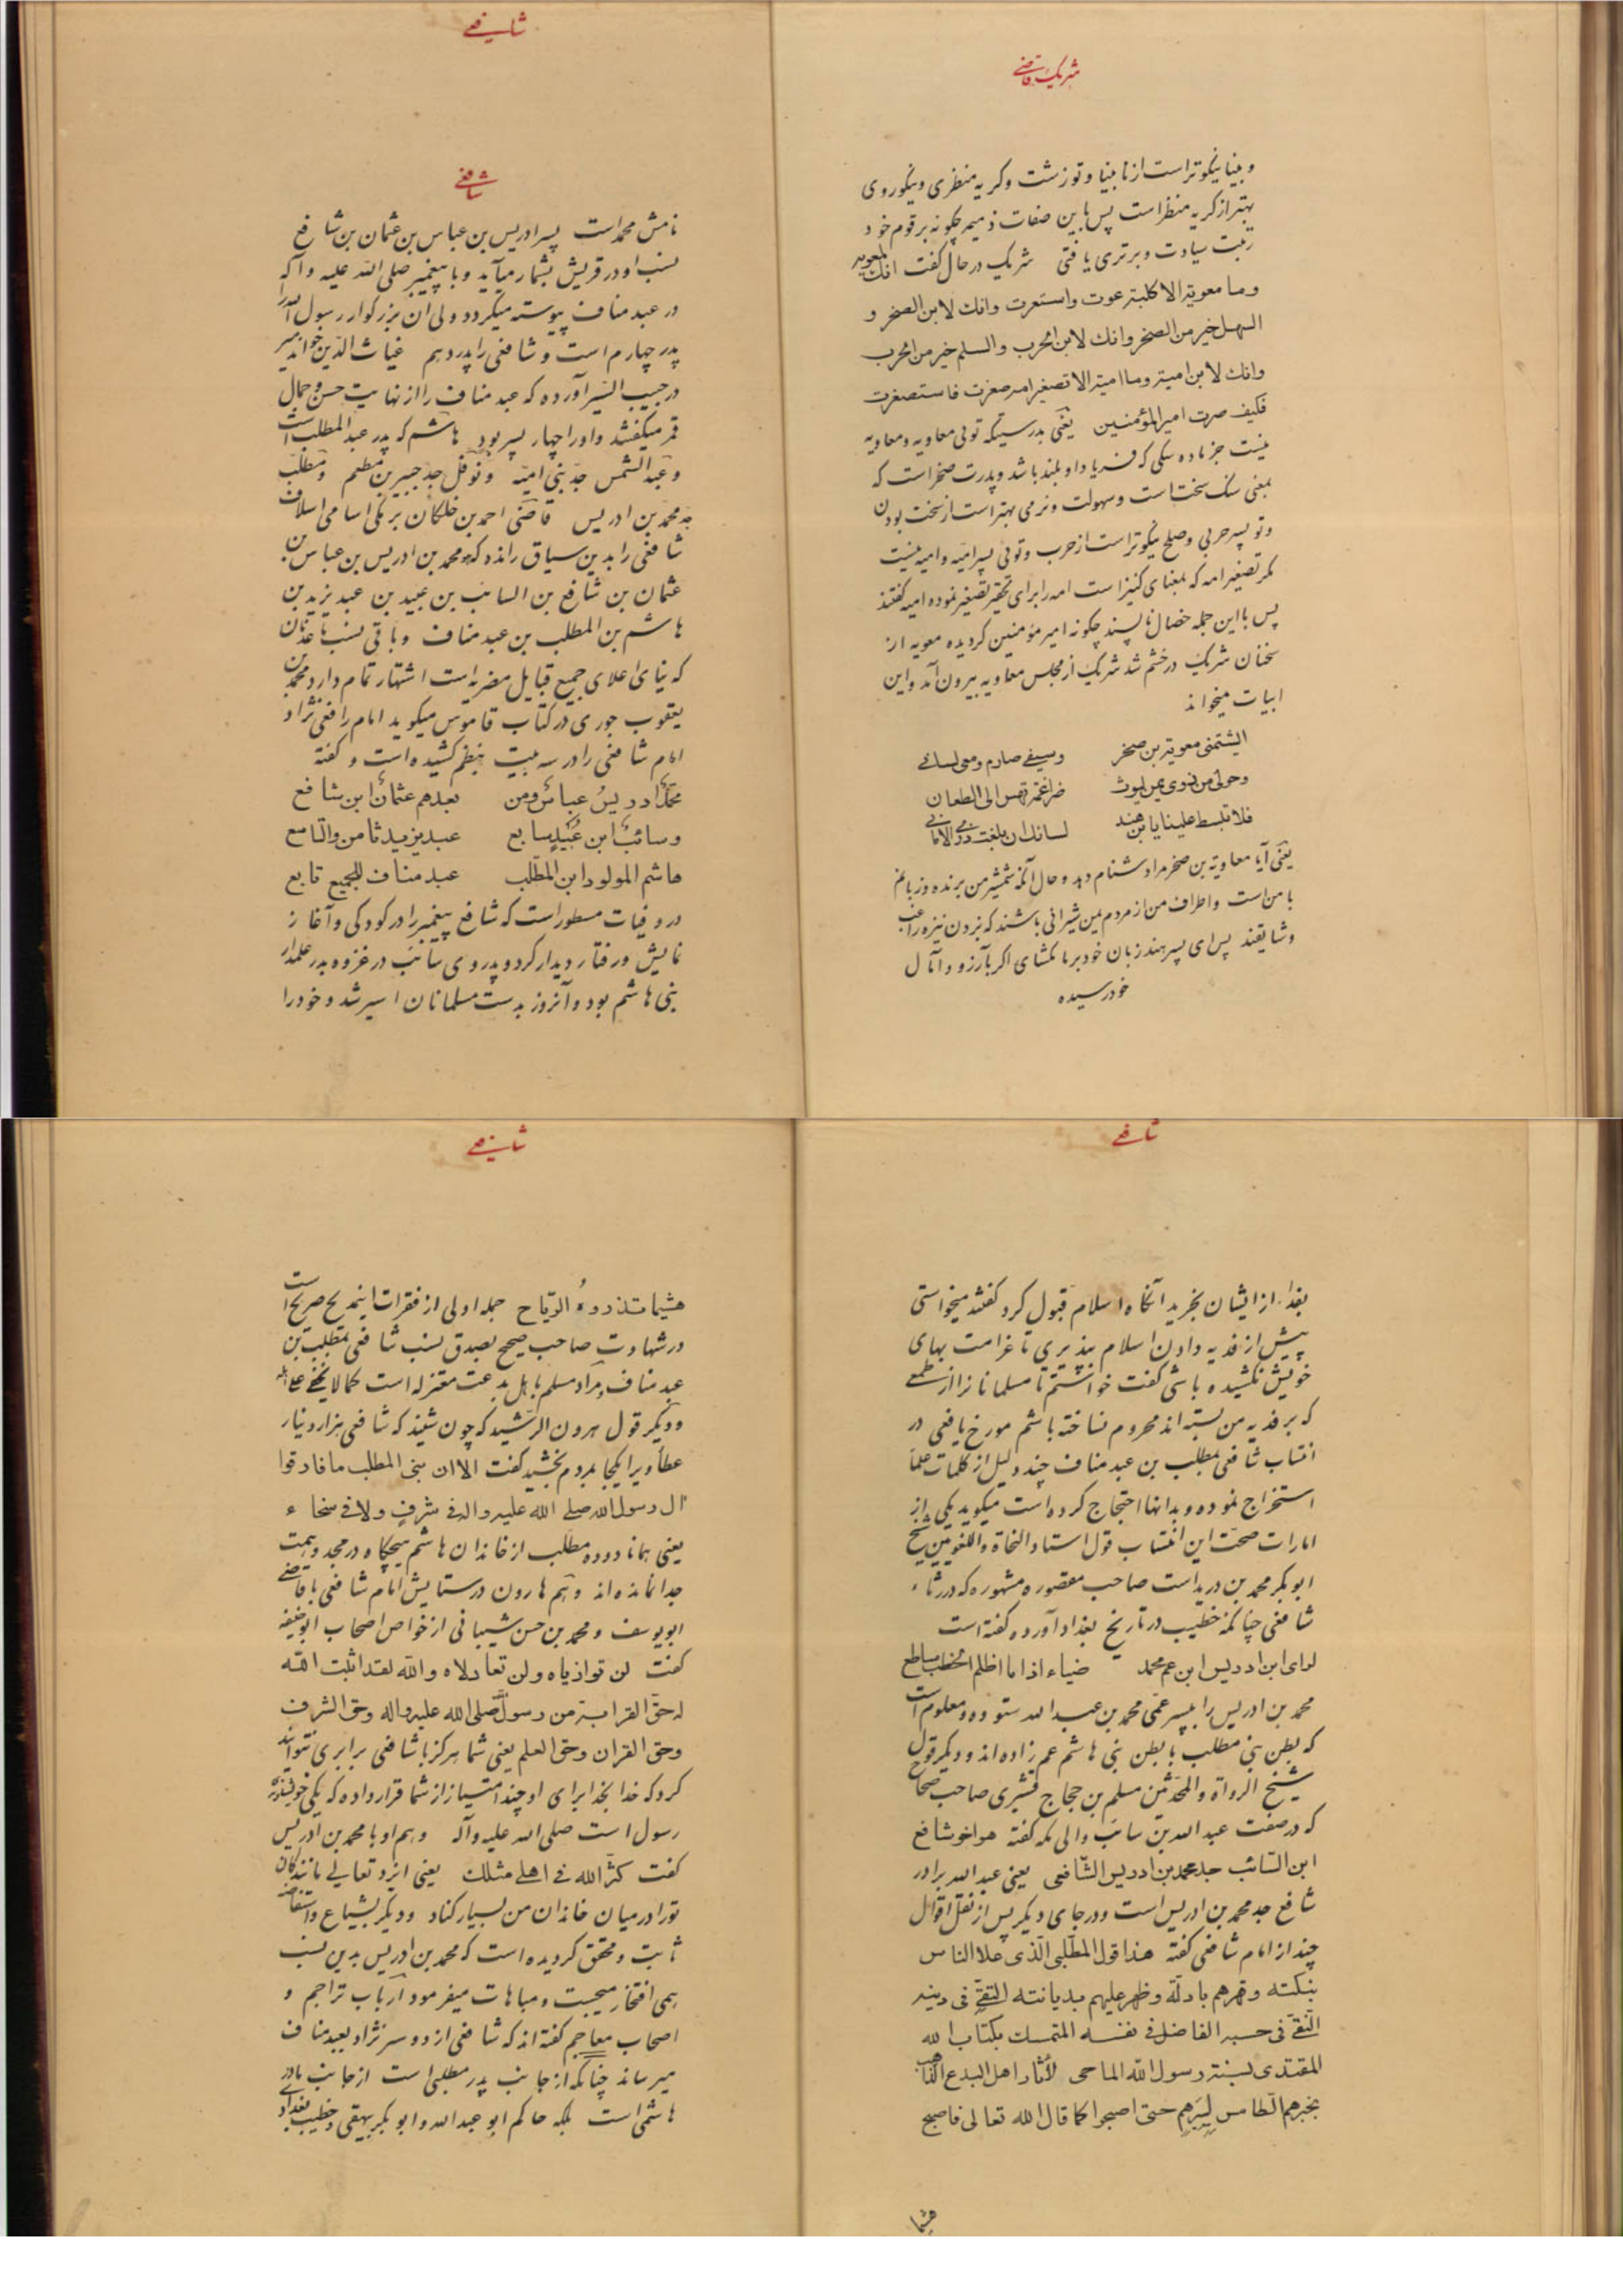 شریک قاضی
و بینا نیکوتر است از نابینا و تو زشت و کریه منظری و نیکوروی
بهتر از کریه منظر است پس با این صفات ذمیمه چگونه بر قوم خود
رتبت سیادت و برتری یافتی شریک در حال گفت انک لمعویه
وما معویة الا کلبة عوت واستعوت وانک لابن الصخر و
السهل خیر من الصخر وانک لابن الحرب والسلم خیر من الحرب
وانک لابن امیة وما امیة الا تصغیر امه صغرت فاستصغرت
فکیف صرت امیرالمؤمنین یعنی بدرستیکه توئی معاویه و معاویه
نیست جز ماده سگی که فریاد او بلند باشد و پدرت صخر است که
بمعنی سنک سخت است و سهولت و نرمی بهتر است از سخت بودن
و تو پسر حربی و صلح نیکوتر است از حرب و توئی پسر امیه و امیه نیست
مکر تصغیر امه که بمعنای کنیز است امه را برای تحقیر تصغیر نموده امیه گفتند
پس با این جمله خصال ناپسند چگونه امیر مؤمنین کردیده معویه از
سخنان شریک در خشم شد شریک از مجلس معاویه بیرون آمد و این
ابیات میخواند
ایشتمنی معویة بن صخر وسیفی صارم ومعی لسانی
وحولی من ذوی یمن لیوث ضراغمة تهش الی الطعان
فلا تبسط علینا یابن هند لسانک ان بلغت ذری الامانی
یعنی آیا معاویة بن صخر مرا دشنام دهد و حال آنکه شمشیر من برنده و زبانم
با من است و اطراف من از مردم یمن شیرانی باشند که بزدن نیزه راغب
و شایقند پس ای پسر هند زبان خود بر ما مکشای اکر بآرزو و آمال
خود رسیده
شافعی
شافعی
نامش محمد است پسر ادریس بن عباس بن عثمان بن شافع
نسب او در قریش بشمار میآید و با پیغمبر صلی الله علیه و آله
در عبد مناف پیوسته میکردد ولی ان بزرکوار رسول الله را
پدر چهارم است و شافعی را پدر دهم غیاث الدین خواندمیر
در حبیب السیر آورده که عبد مناف را از نهایت حسن و جمال
قمر میکفتند و اورا چهار پسر بود هاشم که پدر عبد المطلب است
و عبد الشمس جد بنی امیه و نوفل جد جبیر بن مطعم و مطلب
جد محمد بن ادریس قاضی احمد بن خلکان برمکی اسامی اسلاف
شافعی را بدین سیاق رانده که هو محمد بن ادریس بن عباس بن
عثمان بن شافع بن السائب بن عبید بن عبد یزید بن
هاشم بن المطلب بن عبد مناف و باقی نسب تا عدنان
که نیای اعلای جمیع قبایل مضریه است اشتهار تمام دارد محمد بن
یعقوب جوری در کتاب قاموس میکوید امام رافعی نژاد
امام شافعی را در سه بیت بنظم کشیده است و کفته
محمد ادریس عباس ومن بعدهم عثمان ابن شافع
وسائب ابن عبید سابع عبد یزید ثامن والتاسع
هاشم المولود ابن المطلب عبد مناف للجمیع تابع
در وفیات مسطور است که شافع پیغمبر را در کودکی و آغاز
نمایش و رفتار دیدار کرد و پدر وی سائب در غزوه بدر علمدار
بنی هاشم بود و آنروز بدست مسلمانان اسیر شد و خود را
شافعی
بفدا از ایشان بخرید آنکاه اسلام قبول کرد کفتند میخواستی
پیش از فدیه دادن اسلام بپذیری تا غرامت بهای
خویش نکشیده باشی کفت خواستم تا مسلمانانرا از طمعی
که بر فدیه من بسته اند محروم نساخته باشم مورخ یافعی در
انتساب شافعی بمطلب بن عبد مناف چند دلیل از کلمات علما
استخراج نموده و بدانها احتجاج کرده است میکوید یکی از
امارات صحت این انتساب قول استاد النحاة و اللغویین شیخ
ابو بکر محمد بن درید است صاحب مقصوره مشهوره که در رثاء
شافعی چنانکه خطیب در تاریخ بغداد آورده کفته است
لرای ابن ادریس ابن عم محمد ضیاء اذا ما اظلم الخطب ساطع
محمد بن ادریس را بپسر عمی محمد بن عبد الله ستوده و معلوم است
که بطن بنی مطلب با بطن بنی هاشم عم زاده اند و دیکر قول
شیخ الرواة والمحدثین مسلم بن حجاج قشیری صاحب صحاح
که در صفت عبد الله بن سائب والی مکه کفته هو اخو شافع
ابن السائب جد محمد بن ادریس الشافعی یعنی عبد الله برادر
شافع جد محمد بن ادریس است و در جای دیکر پس از نقل اقوال
چند از امام شافعی کفته هذا قول المطلبی الذی علا الناس
بنکته وقهرهم بادلة وظهر علیهم بدیانته التقی فی دینه
النقی فی حسبه الفاضل فی نفسه المتمسک بکتاب الله
المقتدی بسنة رسول الله الماحی لآثار اهل البدع الذاهب
بخبرهم الطامس لسیرهم حتی اصبحوا کما قال الله تعالی فاصبح
هشیما
شافعی
هشیما تذروه الریاح جمله اولی از فقرات اینمدیح صریح است
در شهادت صاحب صحیح بصدق نسب شافعی بمطلب بن
عبد مناف و مراد مسلم باهل بدعت معتزله است کما لا یخفی علی اهله
و دیکر قول هرون الرشید که چون شنید که شافعی هزار دینار
عطا ویرا یکجا بمردم بخشید کفت الا ان بنی المطلب ما فارقوا
ال رسول الله صلی الله علیه واله فی شرف ولا فی سخاء
یعنی همانا دوده مطلب از خاندان هاشم هیچکاه در مجد و همت
جدا نمانده اند و هم هارون در ستایش امام شافعی با قاضی
ابو یوسف و محمد بن حسن شیبانی از خواص اصحاب ابو حنیفه
کفت لن توازیاه ولن تعادلاه والله لقد اثبت الله
له حق القرابة من رسول الله صلی الله علیه واله وحق الشرف
وحق القران وحق العلم یعنی شما هرکز با شافعی برابری نتوانید
کرد که خدا بخدا برای او چند امتیاز از شما قرار داده که یکی خویشاوندی
رسول است صلی الله علیه و آله و هم او با محمد بن ادریس
کفت کثر الله فی اهلی مثلک یعنی ایزد تعالی مانندکان
تو را در میان خاندان من بسیار کناد و دیکر بشیاع و استفاضه
ثابت و محقق کردیده است که محمد بن ادریس بدین نسب
همی افتخار میجست و مباهات میفرمود ارباب تراجم و
اصحاب معاجم کفته اند که شافعی از دو سر نژاد بعبد مناف
میرساند چنانکه از جانب پدر مطلبی است از جانب مادر
هاشمی است بلکه حاکم ابو عبد الله و ابو بکر بیهقی و خطیب بغداد